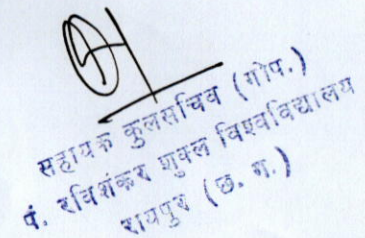 सहायक कुलसचिव (गोप.)
पं. रविशंकर शुक्ल विश्वविद्यालय
रायपुर (छ. ग.)